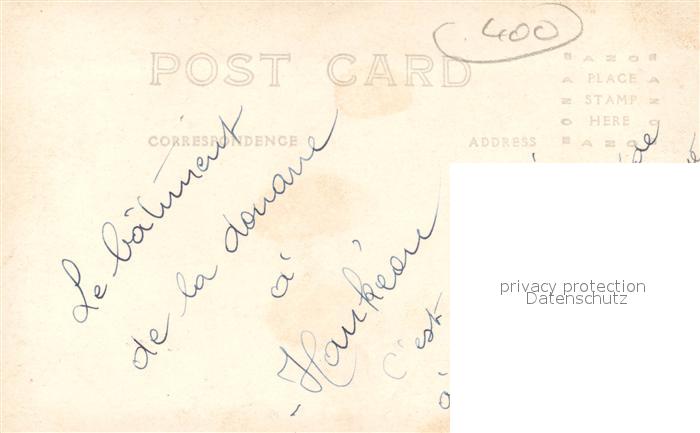 400
POST CARD
AZO
PLACE
STAMP
HERE
AZO
CORRESPONDENCE
ADDRESS
Le bâtiment
de la douane
à
Hankéou
c'est
à
de
privacy protection
Datenschutz